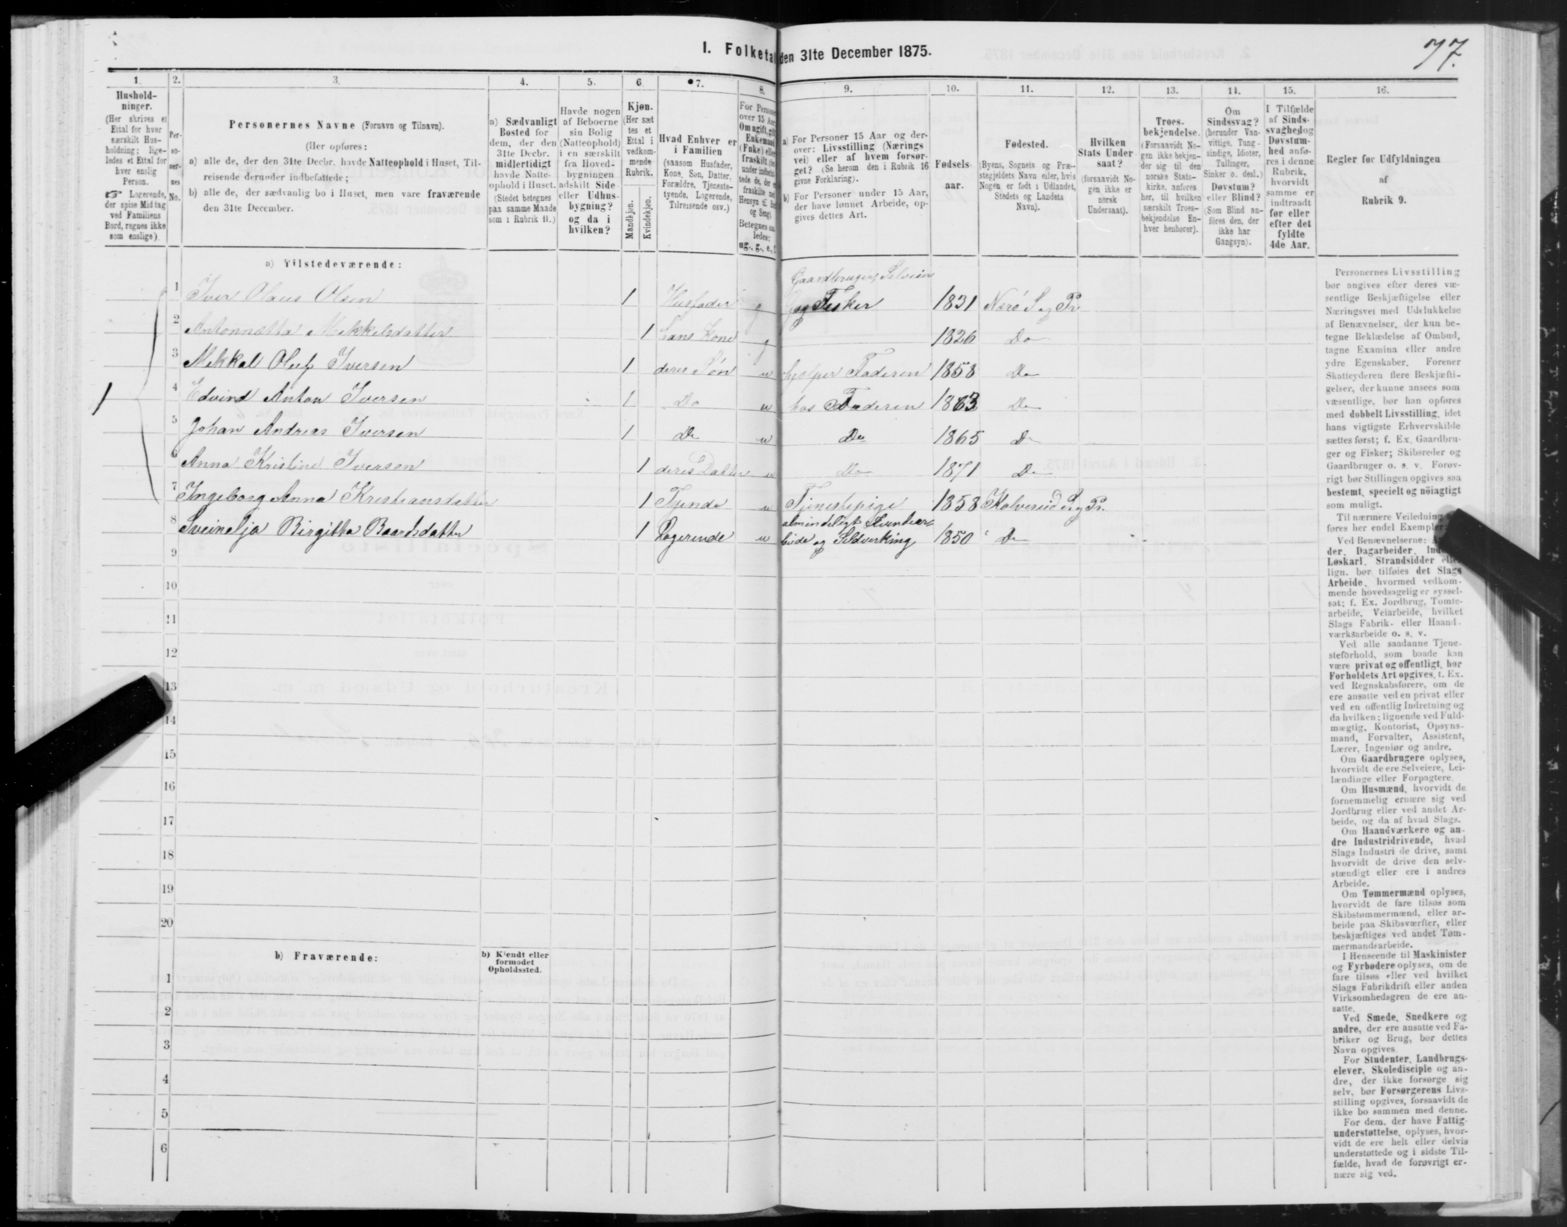 I. Folketal den 31te December 1875.
77.
1. 2. 3. 4. 5. 6. 7. 8. 9. 10. 11. 12. 13. 14. 15. 16.
Personernes Navne (Fornavn og Tilnavn).
(Her opføres:
a) alle de, der den 31te Decbr. havde Natteophold i Huset, Til-
reisende derunder indbefattede;
b) alle de, der sædvanlig bo i Huset, men vare fraværende
den 31te December.
a) Sædvanligt
Bosted for
dem, der den
31te Decbr.
midlertidigt
havde Natte-
ophold i Huset.
(Stedet betegnes
paa samme Maade
som i Rubrik 11.)
Havde nogen
af Beboerne
sin Bolig
(Natteophold)
i en særskilt
fra Hoved-
bygningen
adskilt Side-
eller Udhus-
bygning?
og da i
hvilken?
Kjøn.
(Her sæt
tes et
Ettal i
vedkom-
mende
Rubrik.
Mandkjøn.
Kvindekjøn.
Hvad Enhver er
i Familien
(saasom Husfader,
Kone, Søn, Datter,
Forældre, Tjeneste-
tyende, Logerende,
Tilreisende osv.)
a) For Personer 15 Aar og der-
over: Livsstilling (Nærings
vei) eller af hvem forsør-
get? (Se herom den i Rubrik 16
givne Forklaring).
b) For Personer under 15 Aar,
der have lønnet Arbeide, op-
gives dettes Art.
Fødsels-
aar.
Fødested.
(Byens, Sognets og Præ-
stegjeldets Navn eller, hvis
Nogen er født i Udlandet,
Stedets og Landets
Navn).
Hvilken
Stats Under
saat?
(forsaavidt No-
gen ikke er
norsk
Undersaat).
Troes-
bekjendelse.
(Forsaavidt No-
gen ikke bekjen-
der sig til den
norske Stats-
kirke, anføres
her, til hvilken
særskilt Troes-
bekjendelse En-
hver henhører).
Om
Sindssvag?
(herunder Van-
vittige, Tung-
sindige, Idioter,
Tullinger,
Sinker o. desl.)
Døvstum?
eller Blind?
(Som Blind an-
føres den, der
ikke har
Gangsyn).
I Tilfælde
af Sinds-
svaghed og
Døvstum-
hed anfø-
res i denne
Rubrik,
hvorvidt
samme er
indtraadt
før eller
efter det
fyldte
4de Aar.
Regler for Udfyldningen
af
Rubrik 9.
a) Tilstedeværende:
Gaardbruger, Selveier
1 Iver Olaus Olsen 1 Husfader g og Fisker 1831 Nærø S og Pr
2 Antonnetta Mikkelsdatter 1 hans Kone g 1826 Do
3 Mikkal Oluf Iversen 1 deres Søn u hjelper Faderen 1858 Do
4 Edvind Anton Iversen 1 Do u hos Faderen 1863 Do
5 Johan Andreas Iversen 1 Do u Do 1865 Do
6 Anna Kristine Iversen 1 deres Datter u Do 1871 Do
7 Ingeborg Anna Kristiansdatter 1 Tyende u Tjenestepige 1858 Kolvereid S og Pr.
8 Birgitta Baardsdatter 1 Logerende u og 1850 Do
9
10
11
12
13
14
15
16
17
18
19
20
b) Fraværende:
b) Kjendt eller
formodet
Opholdssted.
1
2
3
4
5
6
Personernes Livsstilling
bør angives efter deres væ-
sentlige Beskjæftigelse eller
Næringsvei med Udelukkelse
af Benævnelser, der kun be-
tegne Beklædelse af Ombud,
tagne Examina eller andre
ydre Egenskaber. Forener
Skatteyderen flere Beskjæfti-
gelser, der kunne ansees som
væsentlige, bør han opføres
med dobbelt Livsstilling, idet
hans vigtigste Erhvervskilde
sættes først; f. Ex. Gaardbru-
ger og Fisker; Skibsreder og
Gaardbruger o. s. v. Forøv-
rigt bør Stillingen opgives saa
bestemt, specielt og nøiagtigt
som muligt.
Til nærmere Veiledning
føres her endel Exempler
Ved Benævnelserne:
der, Dagarbeider,
Løskarl, Strandsidder
lign. bør tilføies det Slags
Arbeide, hvormed vedkom-
mende hovedsagelig er syssel-
sat; f. Ex. Jordbrug, Tomte-
arbeide, Veiarbeide, hvilket
Slags Fabrik- eller Haand-
værksarbeide o. s. v.
Ved alle saadanne Tjene-
steforhold, som baade kan
være privat og offentligt, bør
Forholdets Art opgives, f. Ex.
ved Regnskabsførere, om de
ere ansatte ved en privat eller
ved en offentlig Indretning og
da hvilken; lignende ved Fuld-
mægtig, Kontorist, Opsyns-
mand, Forvalter, Assistent,
Lærer, Ingeniør og andre.
Om Gaardbrugere oplyses,
hvorvidt de ere Selveiere, Lei-
lændinge eller Forpagtere.
Om Husmænd, hvorvidt de
fornemmelig ernære sig ved
Jordbrug eller ved andet Ar-
beide, og da af hvad Slags.
Om Haandværkere og an-
dre Industridrivende, hvad
Slags Industri de drive, samt
hvorvidt de drive den selv-
stændigt eller ere i andres
Arbeide.
Om Tømmermænd oplyses,
hvorvidt de fare tilsøs som
Skibstømmermænd, eller ar-
beide paa Skibsværfter, eller
beskjæftiges ved andet Tøm-
mermandsarbeide.
I Henseende til Maskinister
og Fyrbødere oplyses, om de
fare tilsøs eller ved hvilket
Slags Fabrikdrift eller anden
Virksomhedsgren de ere an-
satte.
Ved Smede, Snedkere og
andre, der ere ansatte ved Fa-
briker og Brug, bør dettes
Navn opgives.
For Studenter, Landbrugs-
elever, Skoledisciple og an-
dre, der ikke forsørge sig
selv, bør Forsørgerens Livs-
stilling opgives, forsaavidt de
ikke bo sammen med denne.
For dem, der have Fattig-
understøttelse, oplyses, hvor-
vidt de ere helt eller delvis
understøttede og i sidste Til-
fælde, hvad de forøvrigt er-
nære sig ved.